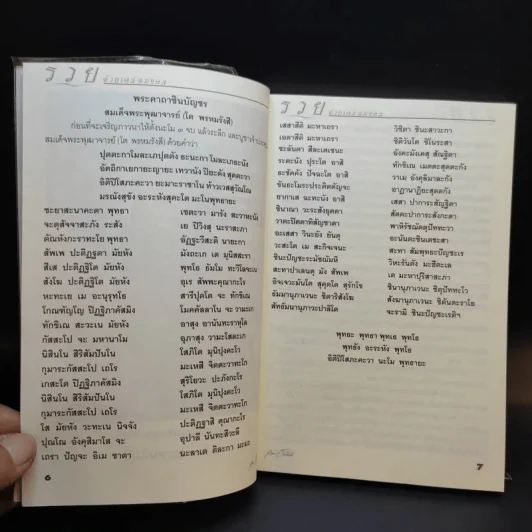 รวย
ด้วยเลขมงคล
พระคาถาชินบัญชร
สมเด็จพระพุฒาจารย์ (โต พรหมรังสี)
ก่อนที่จะเจริญภาวนาให้ตั้งนะโม ๓ จบ แล้วระลึก และบูชาเจ้าประคุณ
สมเด็จพระพุฒาจารย์ (โต พรหมรังสี) ด้วยคำว่า
ปุตตะกาโมละเภปุตตัง ธะนะกาโมละเภธะนัง
อัตถิกาเยกายะญายะ เทวานัง ปิยะตัง สุตตะวา
อิติปิโสภะคะวา ยะมะราชาโน ท้าวเวสสุวัณโณ
มรณังสุขัง อะระหังสุคะโต นะโมพุทธายะ
ชะยาสะนาคะตา พุทธา เชตะวา มารัง สะวาหะนัง
จะตุสัจจาสะภัง ระสัง เย ปิวิงสุ นะราสะภา
ตัณหังกะราทะโย พุทธา อัฏฐะวีสะติ นายะกา
สัพเพ ปะติฏฐิตา มัยหัง มัตถะเก เต มุนิสสะรา
สีเส ปะติฏฐิโต มัยหัง พุทโธ ธัมโม ทะวิโลจะเน
สังโฆ ปะติฏฐิโต มัยหัง อุเร สัพพะคุณากะโร
หะทะเย เม อะนุรุทโธ สารีปุตโต จะ ทักขิเณ
โกณฑัญโญ ปิฏฐิภาคัสมิง โมคคัลลาโน จะ วามะเก
ทักขิเณ สะวะเน มัยหัง อาสุง อานันทะราหุโล
กัสสะโป จะ มหานาโม อุภาสุง วามะโสตะเก
นิสินโน สิริสัมปันโน โสภิโต มุนิปุงคะโว
กุมาระกัสสะโป เถโร มะเหสี จิตตะวาทะโก
เกสะโต ปิฏฐิภาคัสมิง สุริโยวะ ปะภังกะโร
นิสินโน สิริสัมปันโน โสภิโต มุนิปุงคะโว
กุมาระกัสสะโป เถโร มะเหสี จิตตะวาทะโก
โส มัยหัง วะทะเน นิจจัง ปะติฏฐาสิ คุณากะโร
ปุณโณ อังคุลิมาโล จะ อุปาลี นันทะสีวะลี
เถรา ปัญจะ อิเม ชาตา นะลาเต ติละกา มะมะ
6
รวย
ด้วยเลขมงคล
เสสาสีติ มะหาเถรา วิชิตา ชินะสาวะกา
ชิติวันโต ชิโนระสา
ชะลันตา สีละเตเชนะ อังคะมังเคสุ สัณฐิตา
ระตะนัง ปุระโต อาสิ ทักขิเณ เมตตะสุตตะกัง
ธะชัคคัง ปัจฉะโต อาสิ วาเม อังคุลิมาละกัง
ขันธะโมระปะริตตัญจะ อาฏานาฏิยะสุตตะกัง
อากาเส ฉะทะนัง อาสิ เสสา ปาการะสัณฐิตา
ชินาณา วะระสังยุตตา สัตตะปาการะสังกะตา
วาตะปิตตาทิสัญชาตา พาหิรัชฌัตตุปัททะวา
อะเสสา วินะยัง ยันตุ อะนันตะชินะเตชะสา
วะสะโต เม สะกิจเจนะ สะทา สัมพุทธะปัญชะเร
ชินะปัญชะระมัชฌัมหิ วิหะรันตัง มะฮีตะเล
สะทาปาเลนตุ มัง สัพเพ เต มะหาปุริสาสะภา
อิจเจวะมันโต สุคุตโต สุรักโข ชินานุภาเวนะ ชิตุปัททะโว
ธัมมานุภาเวนะ ชิตาริสังโฆ สังฆานุภาเวนะ ชิตันตะราโย
สัทธัมมานุภาวะปาลิโต จะรามิ ชินะปัญชะเรติฯ
พุทธะ พุทธา พุทเธ พุทโธ
พุทธัง อะระหัง พุทโธ
อิติปิโสภะคะวา นะโม พุทธายะ
7